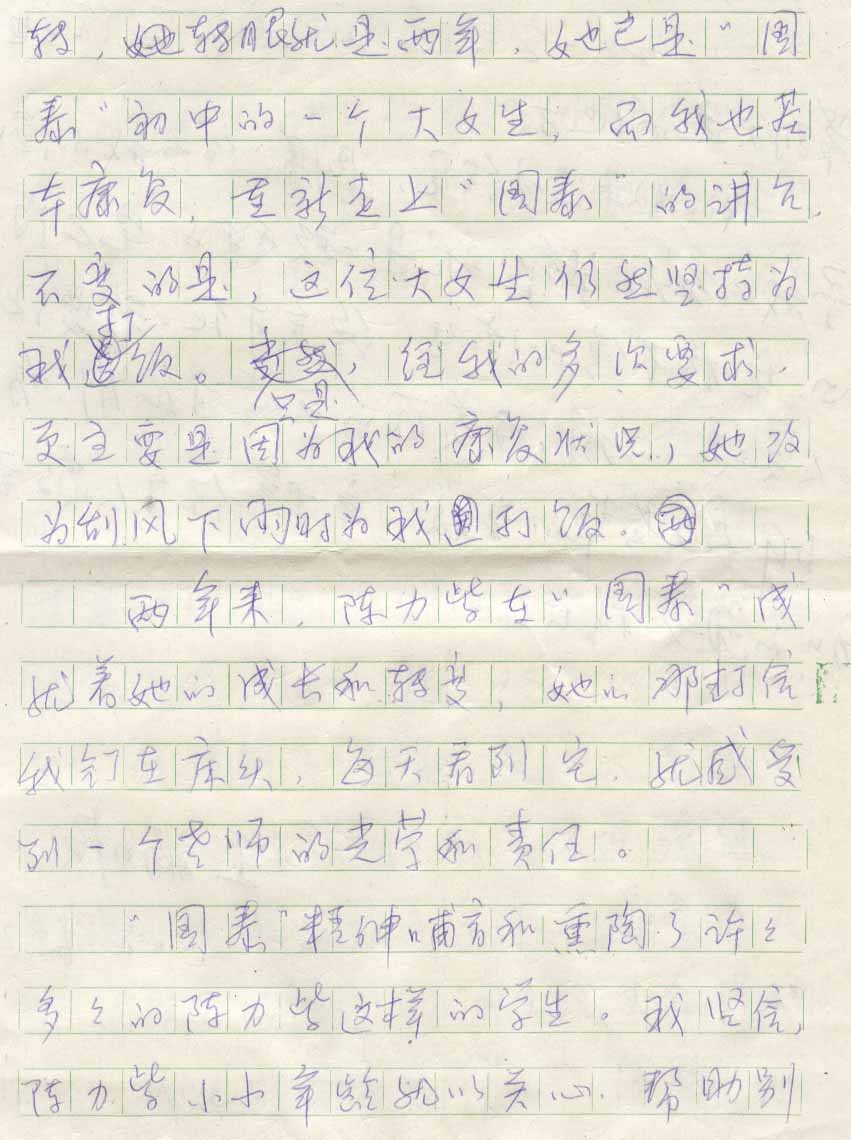 转，她转眼就是两年，她已是“国
泰”初中的一个大女生，而我也基
本康复，重新走上“国泰”的讲台，
不变的是，这位大女生仍然坚持为
我打饭。只是，经我的多次要求，
更主要是因为我的康复状况，她改
为刮风下雨时为我打饭。
两年来，陈力紫在“国泰”成
就着她的成长和转变，她的那封信
我钉在床头，每天看到它，就感受
到一个老师的光荣和责任。
“国泰”精神哺育和熏陶了许々
多々的陈力紫这样的学生。我坚信，
陈力紫小小年龄就以关心、帮助别